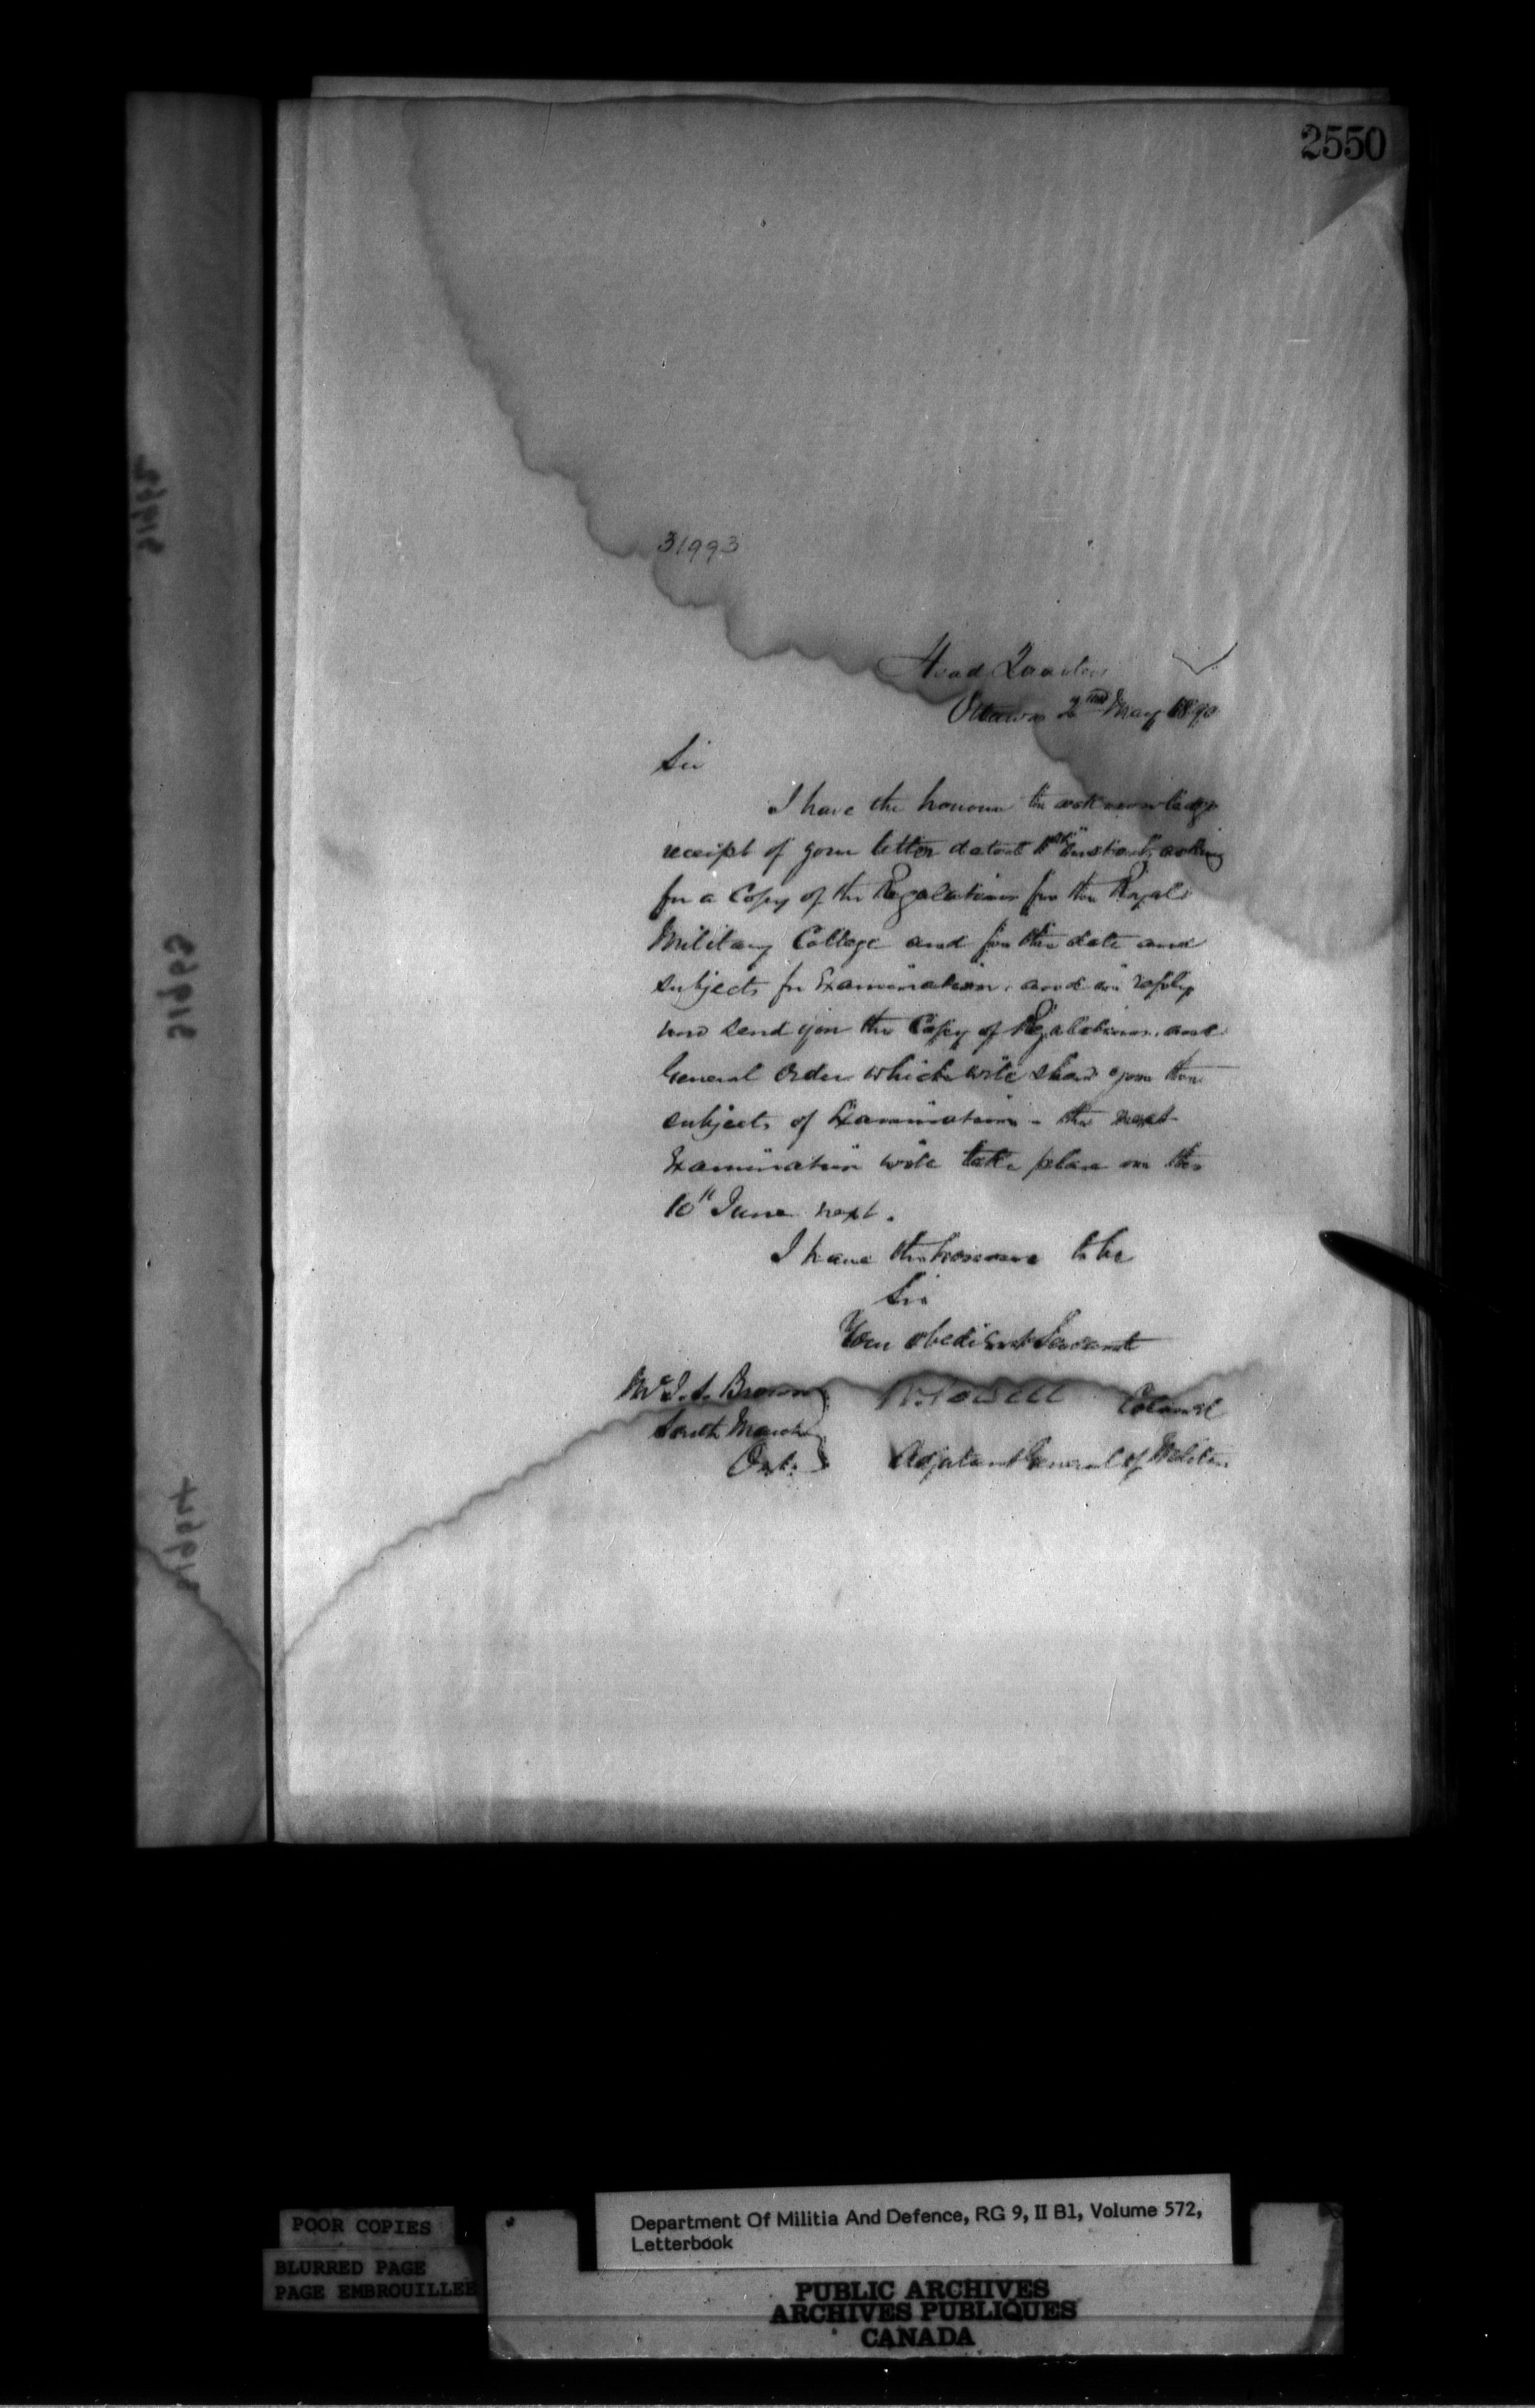 2550
31993
Head Quarters
Ottawa 2nd May 1890
Sir
I have the honour to acknowledge
receipt of your letter dated 1st instant, asking
for a Copy of the Regulations for the Royal
Military College and for the date and
subjects for Examination, and in reply
send you the Copy of Regulations and
General Order which will show you the
subjects of Examination - the next
Examination will take place on the
10th June next.
I have the honour to be
Sir
Your obedient Servant
Mr J. S. Brown
South March
Ont.
W. Powell Colonel
Adjutant General of Militia
31992
31965
31964
POOR COPIES
BLURRED PAGE
PAGE EMBROUILLEE
Department Of Militia And Defence, RG 9, II B1, Volume 572,
Letterbook
PUBLIC ARCHIVES
ARCHIVES PUBLIQUES
CANADA